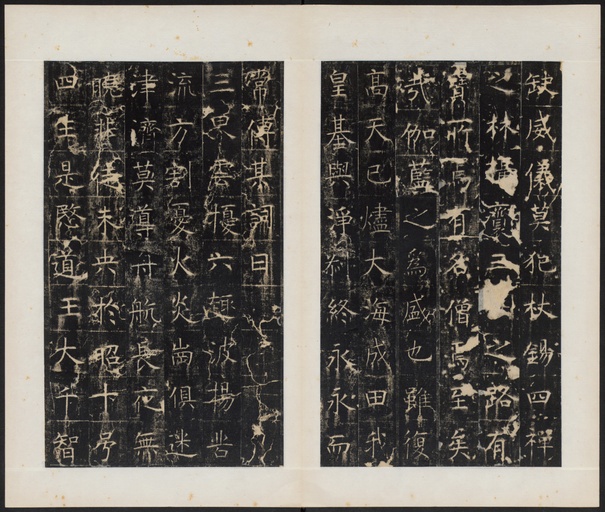 缺威儀莫犯杖錫四禪
之林之路有
寶所焉有名僧焉至矣
哉伽藍之為盛也雖復
高天已燼大海成田我
皇基與淨刹終永永而
常傳其詞曰
三界雲擾六趣波揚苦
流方割憂火炎崗俱迷
津濟莫導舟航長夜無
曉徒未央於昭十号
四生是道王大千智